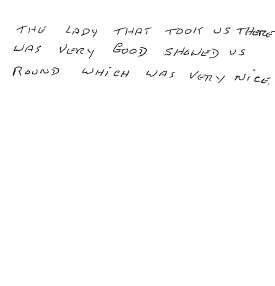 THE LADY THAT TOOK US THERE
WAS VERY GOOD SHOWED US
ROUND WHICH WAS VERY NICE.